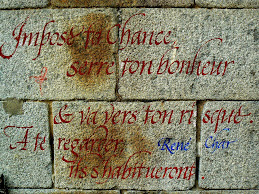 Impose ta Chance,
serre ton bonheur
& va vers ton risque.
A te regarder
René Char
ils s'habitueront.